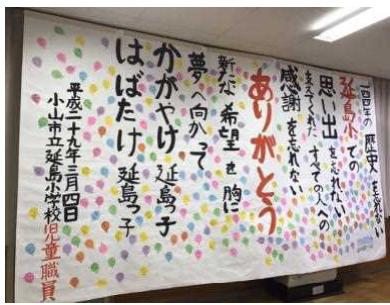 一四四年の歴史を忘れない
延島小での
思い出を忘れない
支えてくれたすべての人への
感謝を忘れない
ありがとう
新たな希望を胸に
夢へ向かって
かがやけ延島っ子
はばたけ延島っ子
平成二十九年三月四日
小山市立延島小学校児童職員